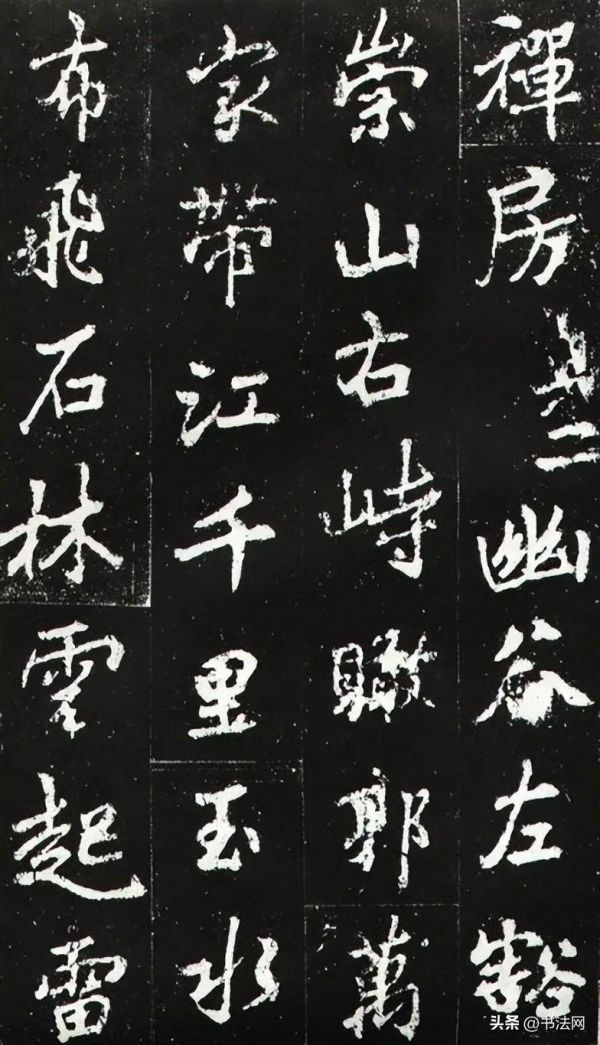 禪房其二幽谷左豁
崇山右峙瞰郭萬
家帶江千里玉水
布飛石林雲起雷
头条 @书法网